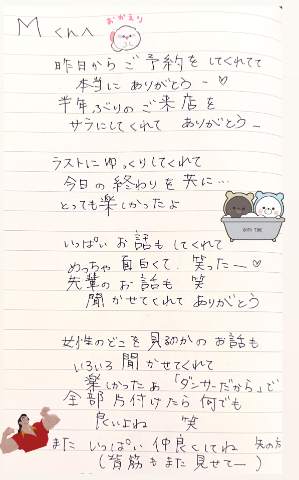 Mくんへ
おかえり
昨日からご予約をしてくれてて
本当にありがとうー♡
半年ぶりのご来店を
サラにしてくれて ありがとうー
ラストにゆっくりしてくれて
今日の終わりを共に…
とっても楽しかったよ
BATH TIME
いっぱいお話もしてくれて
めっちゃ面白くて、笑ったー♡
先輩のお話も 笑
聞かせてくれて ありがとう
女性のどこを見るかのお話も
いろいろ聞かせてくれて
楽しかったぁ 「ダンサーだから」で
全部片付けたら何でも
良いよね 笑
また いっぱい 仲良くしてね
(背筋もまた見せてー)